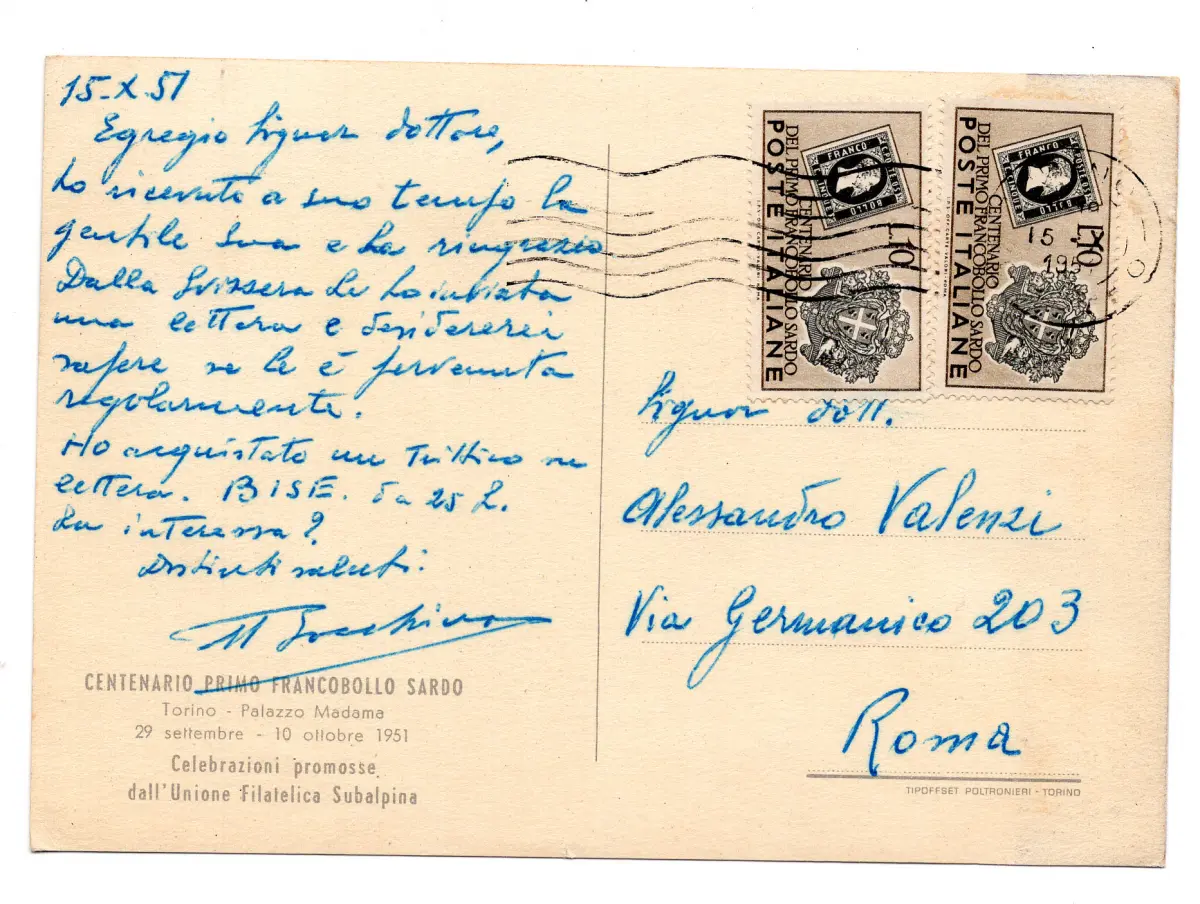 15-X-51
Egregio Signor dottore,
ho ricevuto a suo tempo la
gentile Sua e La ringrazio
Dalla Svizzera Le ho inviata
una lettera e desidererei
sapere se le è pervenuta
regolarmente.
Ho acquistato un trittico su
lettera. BISE. da 25 L.
La interessa?
Distinti saluti.
CENTENARIO PRIMO FRANCOBOLLO SARDO
Torino - Palazzo Madama
29 settembre - 10 ottobre 1951
Celebrazioni promosse
dall'Unione Filatelica Subalpina
CENTENARIO
DEL PRIMO FRANCOBOLLO SARDO
POSTE ITALIANE
L.10
FRANCO
BOLLO
CENTENARIO
DEL PRIMO FRANCOBOLLO SARDO
POSTE ITALIANE
L.10
FRANCO
BOLLO
15
195
Signor dott.
Alessandro Valenzi
Via Germanico 203
Roma
TIPOFFSET POLTRONIERI - TORINO